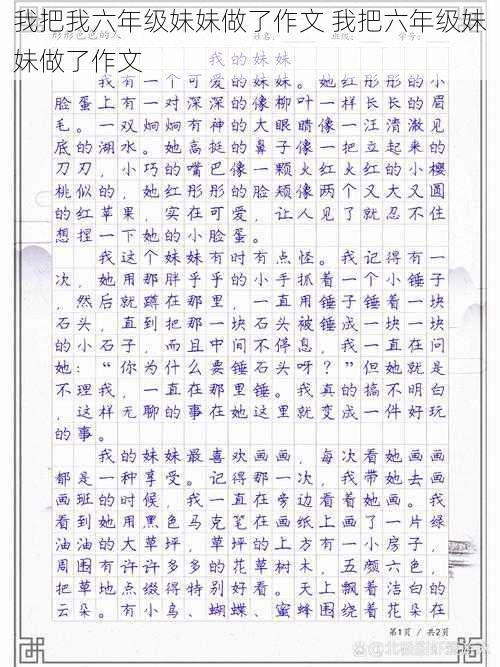 我把我六年级妹妹做了作文 我把六年级妹
妹做了作文
形形色色的人
我的妹妹
我有一个可爱的妹妹。她红彤彤的小
脸蛋上有一对深深的像柳叶一样长长的眉
毛。一双炯炯有神的大眼睛像一汪清澈见
底的湖水。她高挺的鼻子像一把立起来的
刀刃，小巧的嘴巴像一颗火红火红的小樱
桃似的，她红彤彤的脸颊像两个又大又圆
的红苹果，实在可爱，让人见了就忍不住
想捏一下她的小脸蛋。
我这个妹妹有时有点怪。我记得有一
次，她用那胖乎乎的小手抓着一个小锤子
，然后就蹲在那里，一直用锤子锤着一块
石头，直到把那一块石头被锤成一块一块
的小石子，而且中间不停息，我一直在问
她：“你为什么要锤石头呀？”但她就是
不理我，一直在那里锤。我真的搞不明白
，这样无聊的事在她这里就变成一件好玩
的事。
我的妹妹最喜欢画画，每次看她画画
都是一种享受。记得那一次，我带她去画
画班的时候，我一直在旁边看着她画。我
看到她用黑色马克笔在画纸上画了一片绿
油油的大草坪，草坪的上方有一小房子，
周围有许许多多的花草树木，五颜六色，
把草地点缀得特别好看。天上飘着洁白的
云朵。有小鸟、蝴蝶、蜜蜂围绕着花朵在
第1页 / 共2页